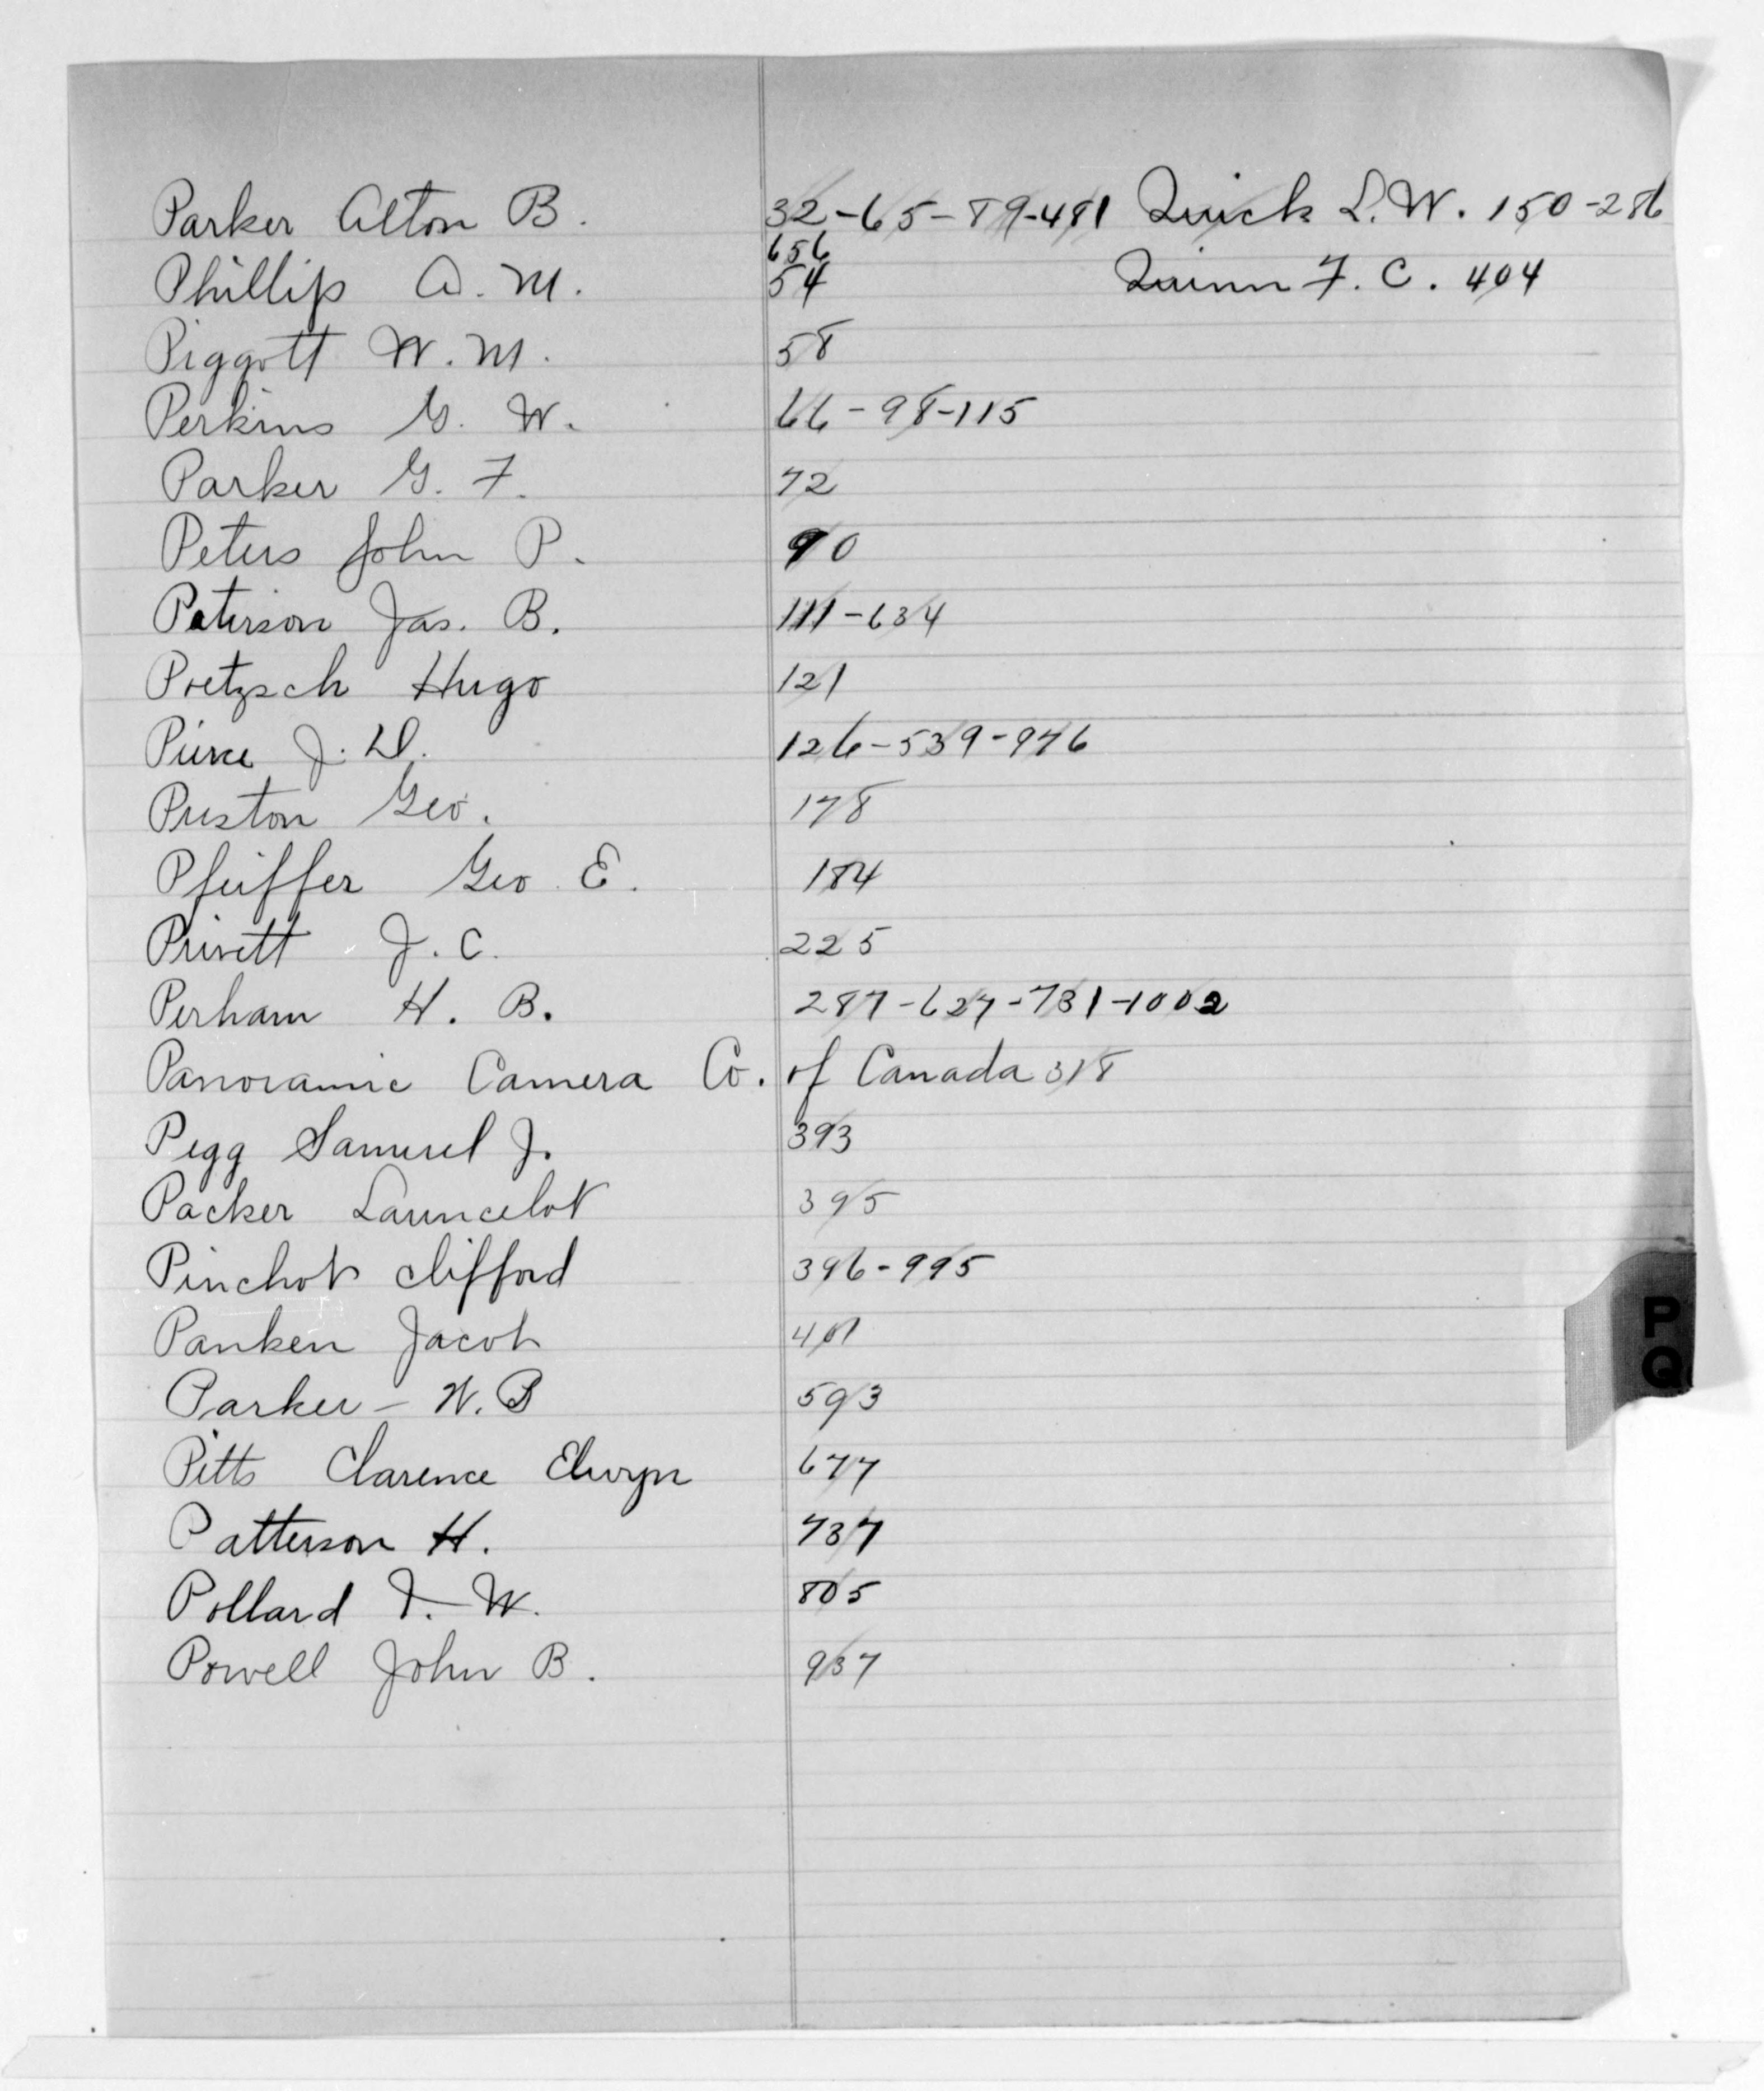 Parker Alton B. 32-65-89-481 Quick L.W. 150-286
656
Phillip A. M. 54 Quinn F. C. 404
Piggott W. M. 58
Perkins G. W. 66-98-115
Parker G. F. 72
Peters John P. 90
Paterson Jas. B. 111-634
Poetzsch Hugo 121
Pierce J. D. 126-539-976
Preston Geo. 178
Pfeiffer Geo E. 184
Privett J. C. 225
Perham H. B. 287-627-731-1002
Panoramic Camera Co. of Canada 318
Pegg Samuel J. 393
Packer Launcelot 395
Pinchot Clifford 396-995
Panken Jacob 401
Parker - W. B 593
P
Q
Pitts Clarence Elwyn 677
Patterson H. 737
Pollard I. W. 805
Powell John B. 937